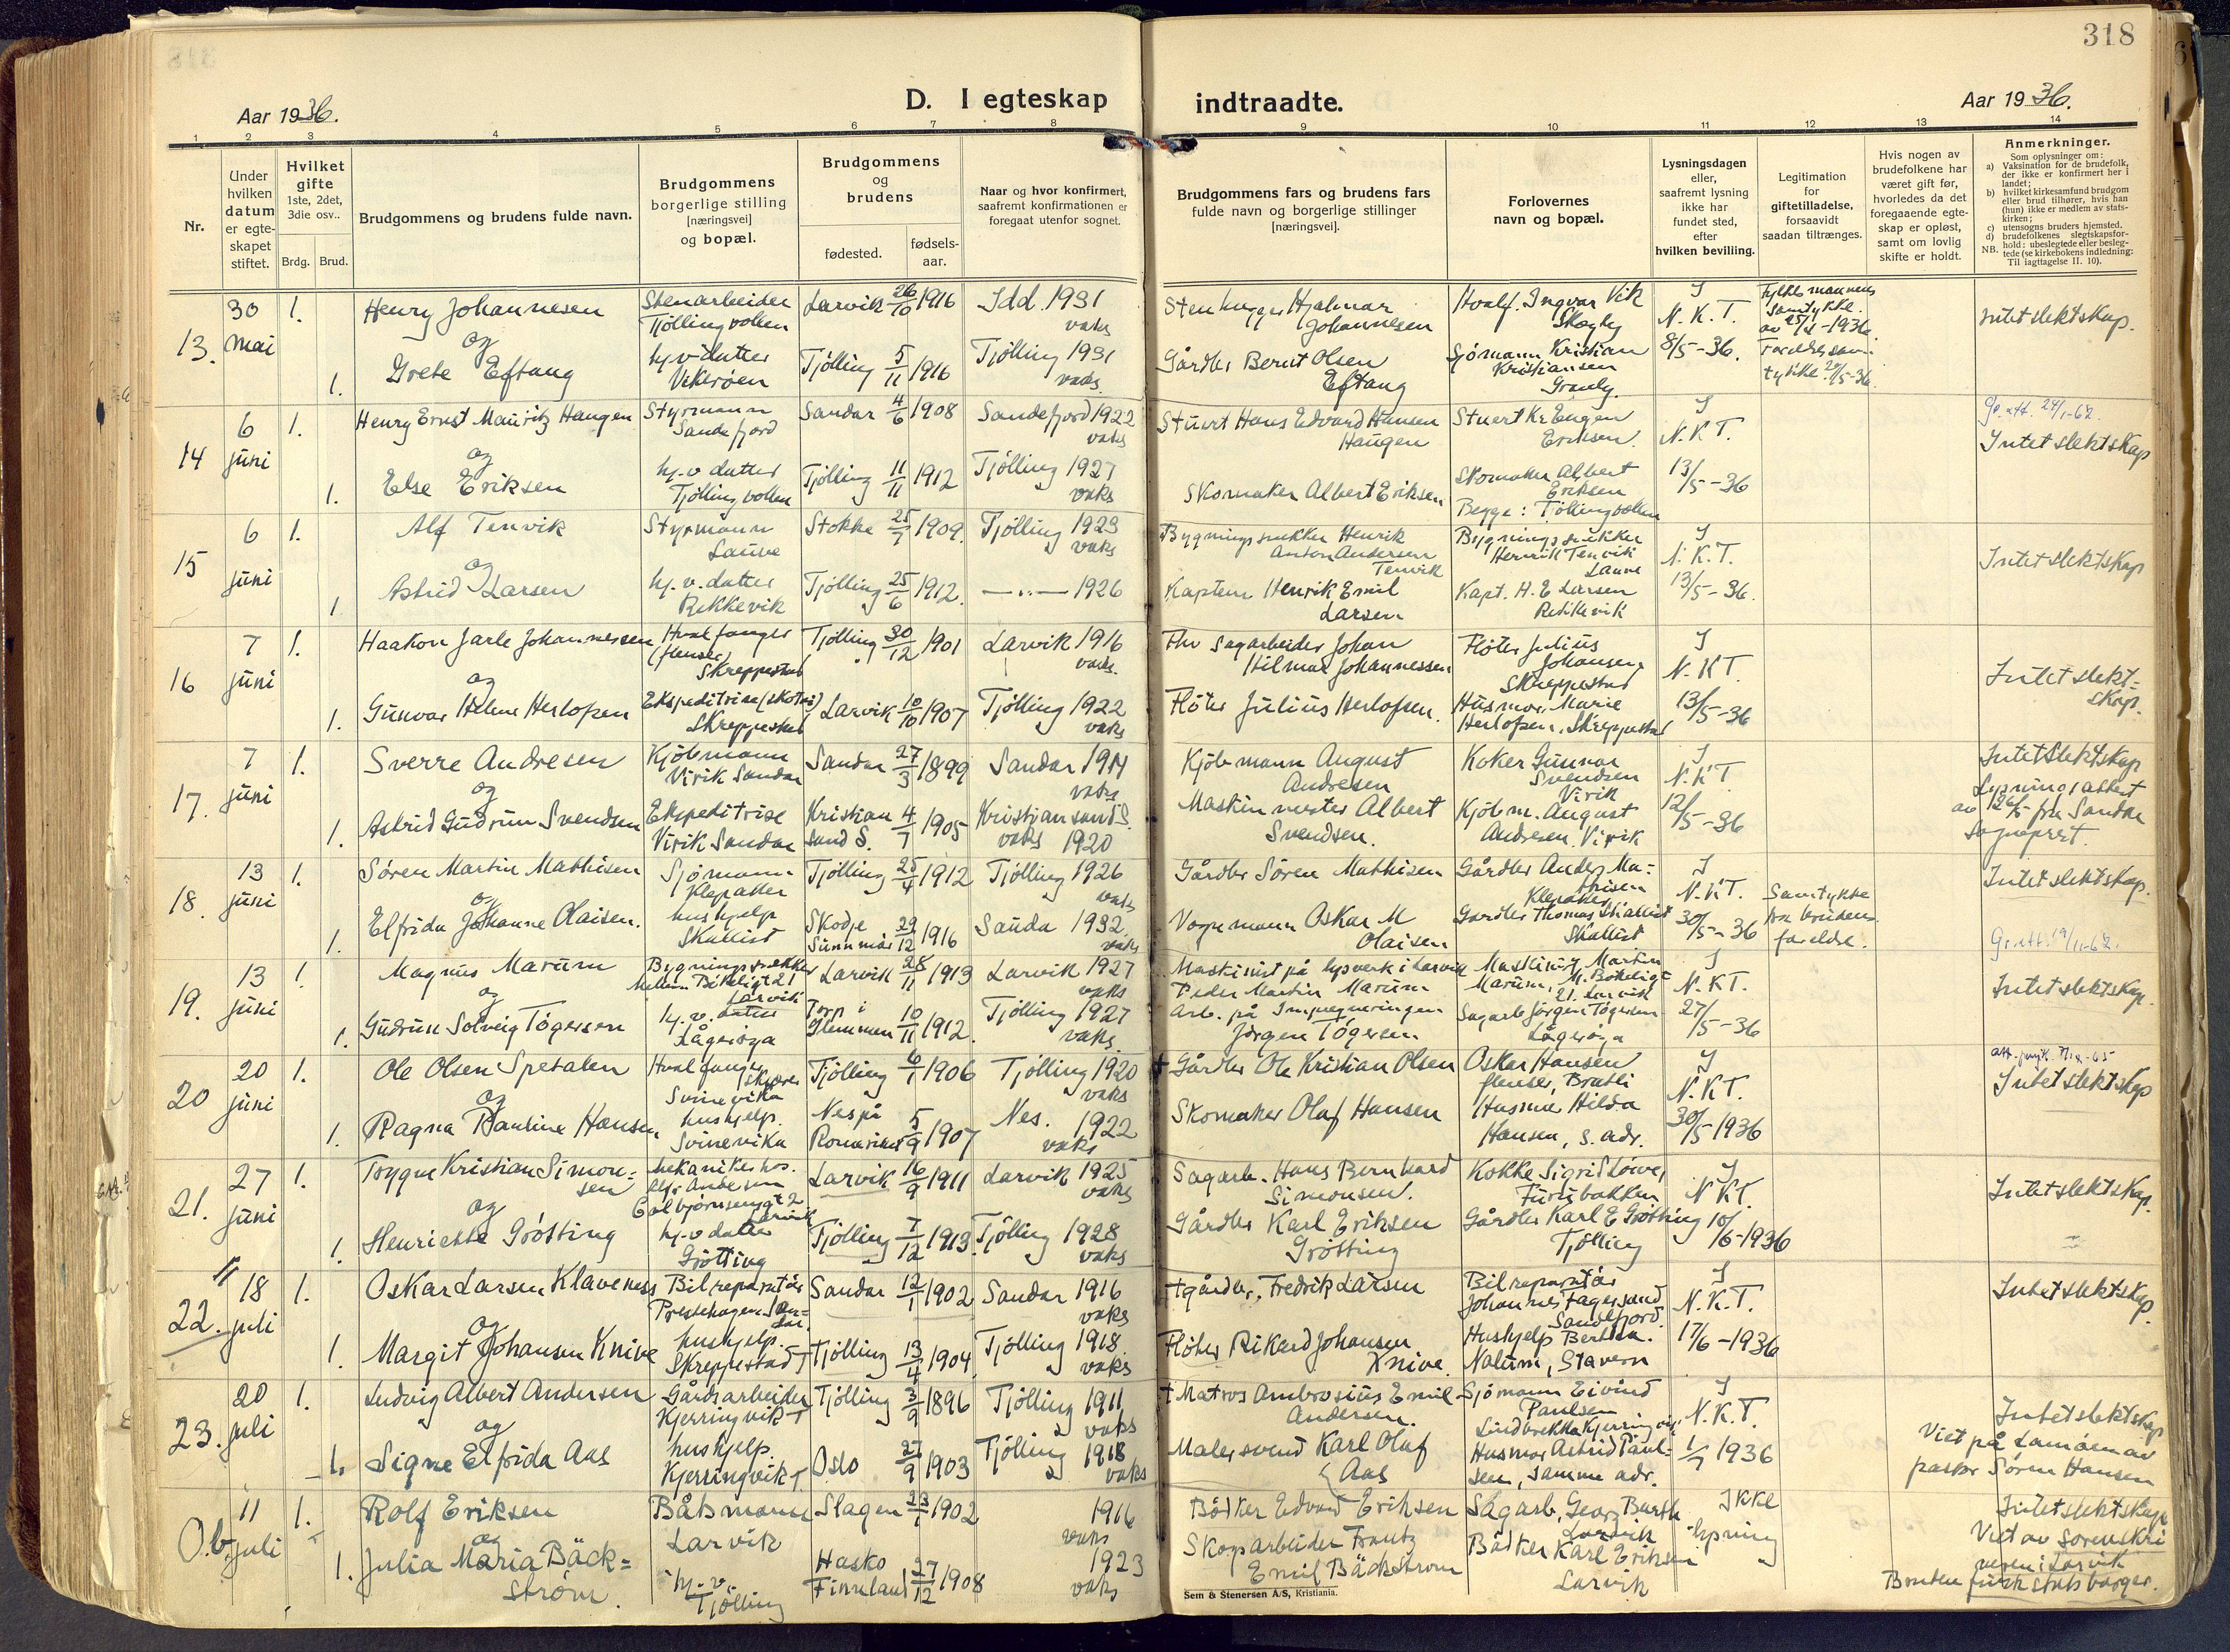 318
Aar 1936.
D. I egteskap indtraadte.
Aar 1936.
1 2 3 4 5 6 7 8 9 10 11 12 13 14
Nr.
Under hvilken datum er egteskapet stiftet.
Hvilket gifte
1ste, 2det, 3die osv..
Brdg. Brud.
Brudgommens og brudens fulde navn.
Brudgommens borgerlige stilling [næringsvei] og bopæl.
Brudgommens og brudens
fødested.
fødsels-aar.
Naar og hvor konfirmert, saafremt konfirmationen er foregaat utenfor sognet.
Brudgommens fars og brudens fars fulde navn og borgerlige stillinger [næringsvei].
Forlovernes navn og bopæl.
Lysningsdagen eller, saafremt lysning ikke har fundet sted, efter hvilken bevilling.
Legitimation for giftetilladelse, forsaavidt saadan tiltrænges.
Hvis nogen av brudefolkene har været gift før, hvorledes da det foregaaende egteskap er opløst, samt om lovlig skifte er holdt.
Anmerkninger.
Som oplysninger om:
a) Vaksination for de brudefolk, der ikke er konfirmert her i landet;
b) hvilket kirkesamfund brudgom eller brud tilhører, hvis han (hun) ikke er medlem av statskirken;
c) utensogns bruders hjemsted.
d) brudefolkenes slegtskapsforhold: ubeslegtede eller beslegtede (se kirkebokens indledning:
NB. Til iagttagelse II. 10).
13. 30 mai 1. Henry Johannesen Stenarbeider Tjøllingvollen Larvik 26/10 1916 Idd 1931 vaks Stenhugger Hjalmar Johannesen Hvalf. Ingvar Vik Skogly I N.K.T. 8/5-36. Fylkesmannens samtykke av 25/4-1936 Intet slektskap.
og
1. Grete Eftang hj.v. datter Vikerøen Tjølling 5/11 1916 Tjølling 1931 vaks. Gårdbr Bernt Olsen Eftang Sjømann Kristian Kristiansen Granly.
14 6 juni 1. Henry Ernst Mauritz Haugen Styrmann Sandefjord Sandar 4/6 1908 Sandefjord 1922 vaks Stuert Hans Edvard Hansen Haugen Stuert Kr. Eugen Eriksen. I N.K.T. 13/5-36 Intet slektskap
og
1. Else Eriksen hj.v. datter Tjøllingvollen Tjølling 11/11 1912 Tjølling 1927 vaks Skomaker Albert Eriksen Skomaker Albert Eriksen Begge: Tjøllingvollen
15 6 juni 1. Alf Tenvik Styrmann Lauve Stokke 25/7 1909. Tjølling 1923 vaks Bygningssnekker Henrik Anton Andersen Tenvik Bygningssnekker Henrik Tenvik Lauve I N.K.T. 13/5-36. Intet slektskap
og
1 Astrid Larsen hj.v. datter Rekkevik Tjølling 25/6 1912. —"— 1926 Kaptein Henrik Emil Larsen Kapt. H. E. Larsen Rekkevik
16 7 juni 1. Haakon Jarle Johannessen Hvalfanger (flenser) Skreppestad Tjølling 30/12 1901 Larvik 1916 vaks. Fhv Sagarbeider Johan Hilmar Johannessen Fløter Julius Johansen, Skreppestad I N.K.T. 13/5-36 Intet slektskap.
og
1. Gunvor Helene Herlofsen Ekspeditrise (skotøi) Skreppestad Larvik 10/10 1907 Tjølling 1922 vaks Fløter Julius Herlofsen. Husmor Marie Herlofsen, Skreppestad
17. 7 juni 1. Sverre Andresen Kjøbmann Virik Sandar Sandar 27/3 1899 Sandar 1914 vaks Kjøbmann August Andresen Koker Gunnar Svendsen Virik I N.K.T. 12/5-36 Intet slektskap Lysningsattest av 26/5 fra Sandar Sogneprest.
og
1. Astrid Gudrun Svendsen Ekspeditrise Virik Sandar Kristiansand S. 4/7 1905 Kristiansand S. vaks 1920 Maskinmester Albert Svendsen. Kjøbm. August Andresen. Virik
18. 13 juni 1. Søren Martin Mathisen Sjømann Klepaker Tjølling 25/4 1912 Tjølling 1926 vaks Gårdbr Søren Mathisen Gårdbr Anders Mathisen Klepaker I N.K.T. 30/5-36 Samtykke fra brudens foreldre. Intet slektskap.
og
1. Elfrida Johanne Olaisen. hushjelp Skallist Skodje Sunnmør 29/12 1916 Sauda 1932. vaks Vognmann Oskar M Olaisen Gårdbr Thomas Skallist Skallist
19. 13 juni 1. Magnus Marum Bygningssnekker Mellom Bøkeligt 21 Larvik Larvik 28/11 1913 Larvik 1927 vaks Maskinist på lysverk i Larvik Peder Martin Marum Maskinist Martin Marum, M. Bøkeligt 21. Larvik I N.K.T. 27/5-36 Intet slektskap.
og
1. Gudrun Solveig Tøgersen hj.v. datter Lågerøya Torp i Glemmen 10/11 1912. Tjølling 1927 vaks. Arb. på Impregneringen Jørgen Tøgersen Sagarb Jørgen Tøgersen Lågerøya
20 20 juni 1. Ole Olsen Spetalen Hvalfanger Svinevika Tjølling 6/1 1906 Tjølling 1920 vaks † Gårdbr Ole Kristian Olsen Oskar Hansen flenser, Bratli I N.K.T. 30/5 1936 Intet slektskap
og
1. Ragna Pauline Hansen hushjelp. Svinevika Nes på Romerike 5/9 1907 Nes. 1922 vaks Skomaker Olaf Hansen Husmor Hilda Hansen, s. adr.
21. 27 juni 1. Trygve Kristian Simonsen mekaniker hos. Alf. Andersen Colbjørnsensgt 2 Larvik Larvik 16/9 1911 Larvik 1925 vaks Sagarb. Hans Bernhard Simonsen. Kokke Sigrid Løwe, Furubakken I N.K.T. 10/6-1936 Intet slektskap.
og
1. Henriette Grøtting hj.v datter Grøtting Tjølling 7/12 1913 Tjølling 1928 vaks Gårdbr Karl Eriksen Grøtting Gårdbr Karl E Grøtting Tjølling
22. 18 juli 1. Oskar Larsen Klaveness Bilreparatør Prestehagen Sandar. Sandar 12/1 1902 Sandar 1916 vaks † gårdbr, Fredrik Larsen Bilreparatør Johannes Fagersand Sandefjord. I N.K.T. 17/6-1936 Intet slektskap.
og
1. Margit Johansen Knive hushjelp. Skreppestad T Tjølling 13/4 1904. Tjølling 1918. vaks Fløter Rikard Johansen Knive Hushjelp Bertha. Nalum, Stavern
23. 20 juli 1. Ludvig Albert Andersen Gårdsarbeider Kjerringvik T Tjølling 3/9 1896 Tjølling 1911 vaks † Matros Ambrosius Emil Andersen. Sjømann Eivind Paulsen Lindbrekka Kjerringvik I N.K.T. 1/7 1936 Intet slektskap Viet på Lamøen av pastor Søren Hansen
og
1. Signe Elfrida Aas hushjelp. Kjerringvik T. Oslo 27/9 1903 Tjølling 1918 vaks Malersvend Karl Olaf Aas Husmor Astrid Paulsen, samme adr.
O.b. 11 juli 1. Rolf Eriksen Båtsmann Larvik Slagen 23/1 1902 1916 vaks Bødker Edvard Eriksen Sagarb. Georg Barth Larvik Ikke lysning Intet slektskap Viet av sorenskriveren i Larvik Bruden finsk statsborger.
og
1. Julia Maria Bäckström. hj.v. Tjølling Hasko Finnland 27/12 1908 1923 vaks Skogarbeider Frantz Emil Bäckström Bødker Karl Eriksen Larvik
Sem & Stenersen A/S, Kristiania.